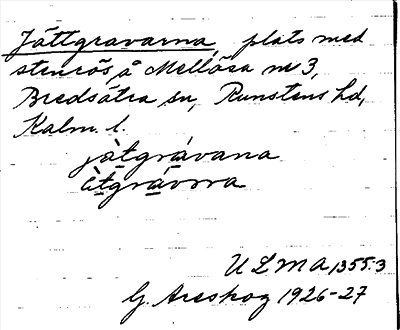 Jättgravarna, plats med
stenrös, å Mellösa nr 3,
Bredsätra sn, Runstens hd,
Kalm. l.
jàtgrávana
ULMA 1355:3
G. Areskog 1926-27